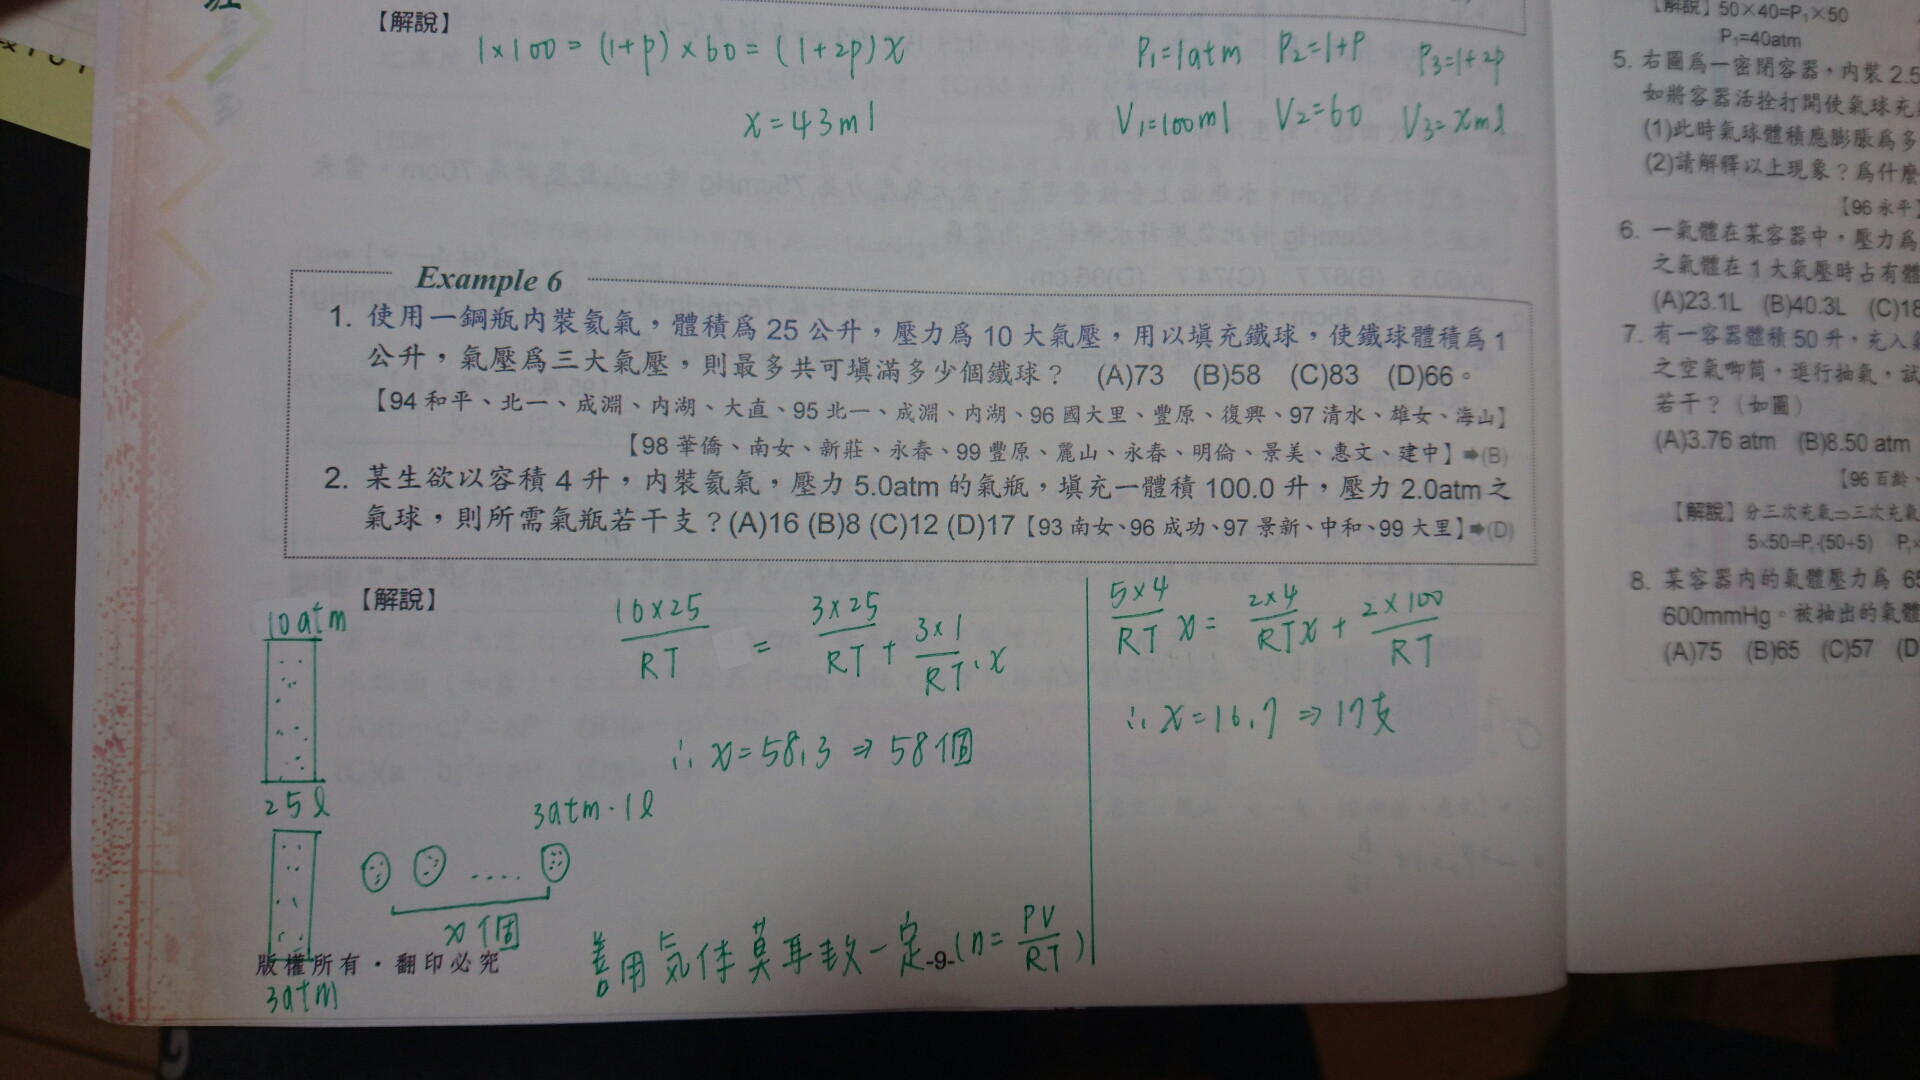 【解說】
1×100=(1+p)×60=(1+2p)x
x=43ml
P₁=1atm P₂=1+P P₃=1+2p
V₁=100ml V₂=60 V₃=xml
Example 6
1. 使用一鋼瓶內裝氦氣，體積爲 25 公升，壓力爲 10 大氣壓，用以填充鐵球，使鐵球體積爲 1
公升，氣壓爲三大氣壓，則最多共可填滿多少個鐵球？ (A)73 (B)58 (C)83 (D)66。
【94 和平、北一、成淵、内湖、大直、95 北一、成淵、内湖、96 國大里、豐原、復興、97 清水、雄女、海山】
【98 華僑、南女、新莊、永春、99 豐原、麗山、永春、明倫、景美、惠文、建中】➡(B)
2. 某生欲以容積 4 升，內裝氦氣，壓力 5.0atm 的氣瓶，填充一體積 100.0 升，壓力 2.0atm 之
氣球，則所需氣瓶若干支？(A)16 (B)8 (C)12 (D)17【93 南女、96 成功、97 景新、中和、99 大里】➡(D)
【解說】
10atm
25l
3atm
10×25/RT = 3×25/RT + 3×1/RT·x
∴ x=58.3 ⇒ 58個
3atm·1l
....
x個
5×4/RT x = 2×4/RT x + 2×100/RT
∴ x=16.7 ⇒ 17支
善用気体莫耳数一定(n=PV/RT)
版權所有・翻印必究
-9-
【解說】50×40=P₁×50
P₁=40atm
5. 右圖爲一密閉容器，內裝 2.5
如將容器活拴打開使氣球充
(1)此時氣球體積應膨脹爲多
(2)請解釋以上現象？爲什麼
【96 永平】
6. 一氣體在某容器中，壓力爲
之氣體在 1 大氣壓時占有體
(A)23.1L (B)40.3L (C)18
7. 有一容器體積 50 升，充入
之空氣唧筒，進行抽氣，試
若干？（如圖）
(A)3.76 atm (B)8.50 atm
【96 百齡、
【解說】分三次充氣⇒三次充氣
5×50=P₁·(50+5) P₁×
8. 某容器內的氣體壓力爲 65
600mmHg。被抽出的氣體
(A)75 (B)65 (C)57 (D